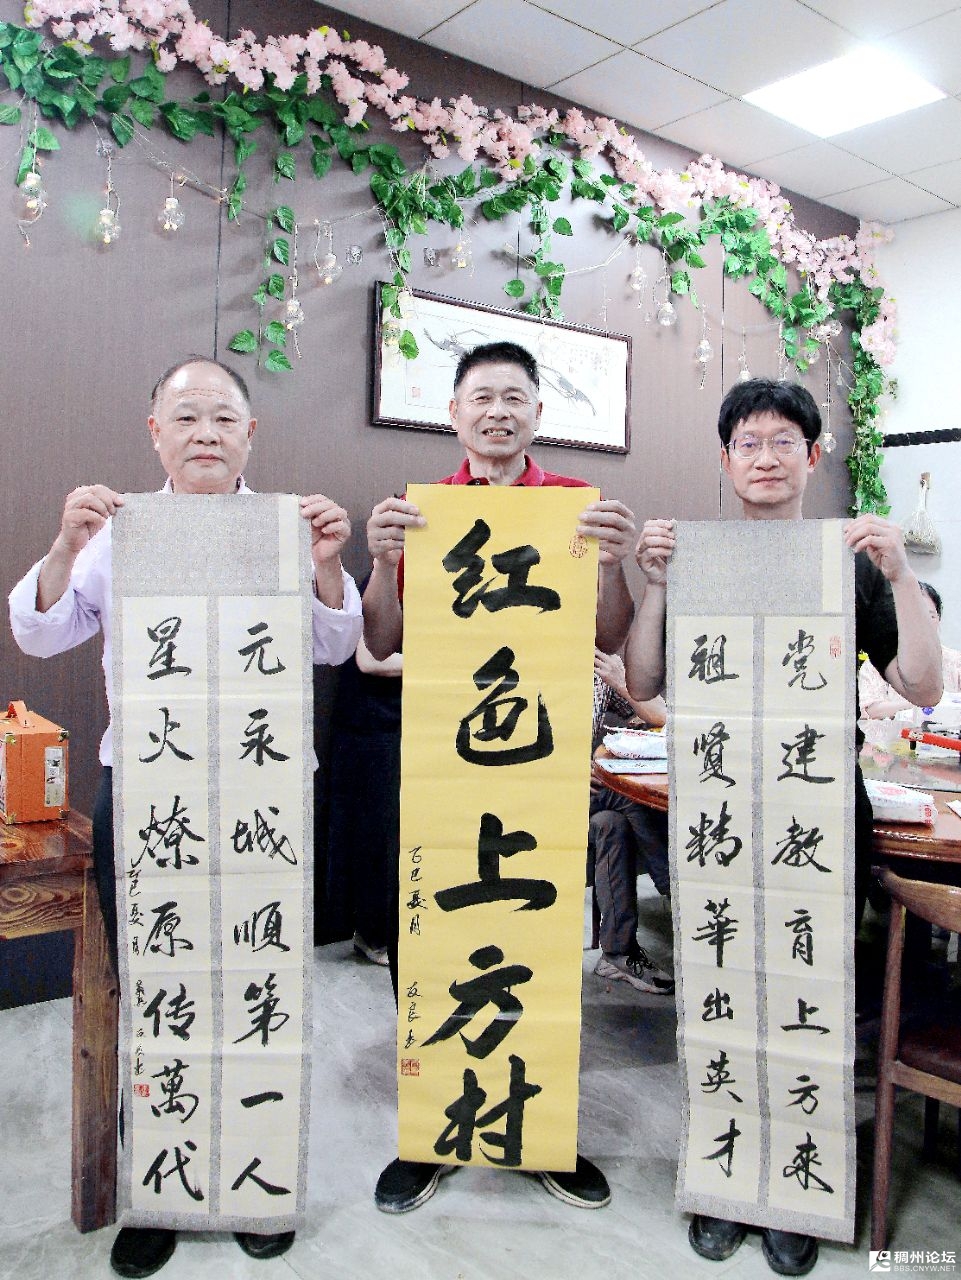 元永城順第一人
星火燎原传萬代
红色上方村
乙巳夏月
友良书
党建教育上方来
祖贤精華出英才
稠州论坛
BBS.CNYW.NET